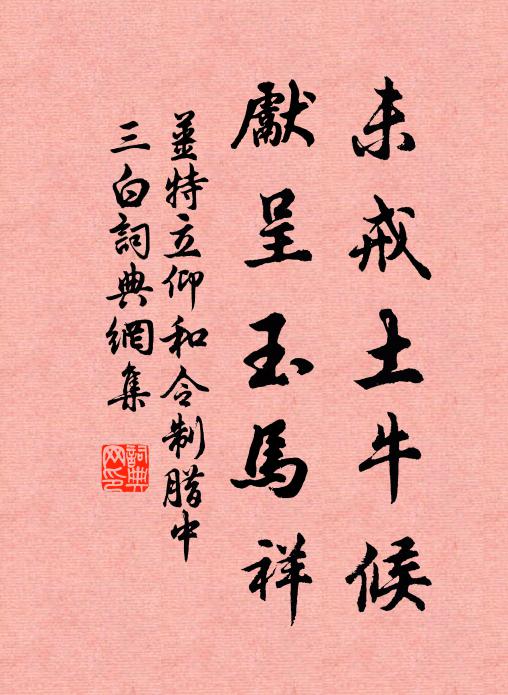 未戒土牛候
獻呈玉馬祥
薑特立仰和令制腊中
三白詞典網集
詞典网印